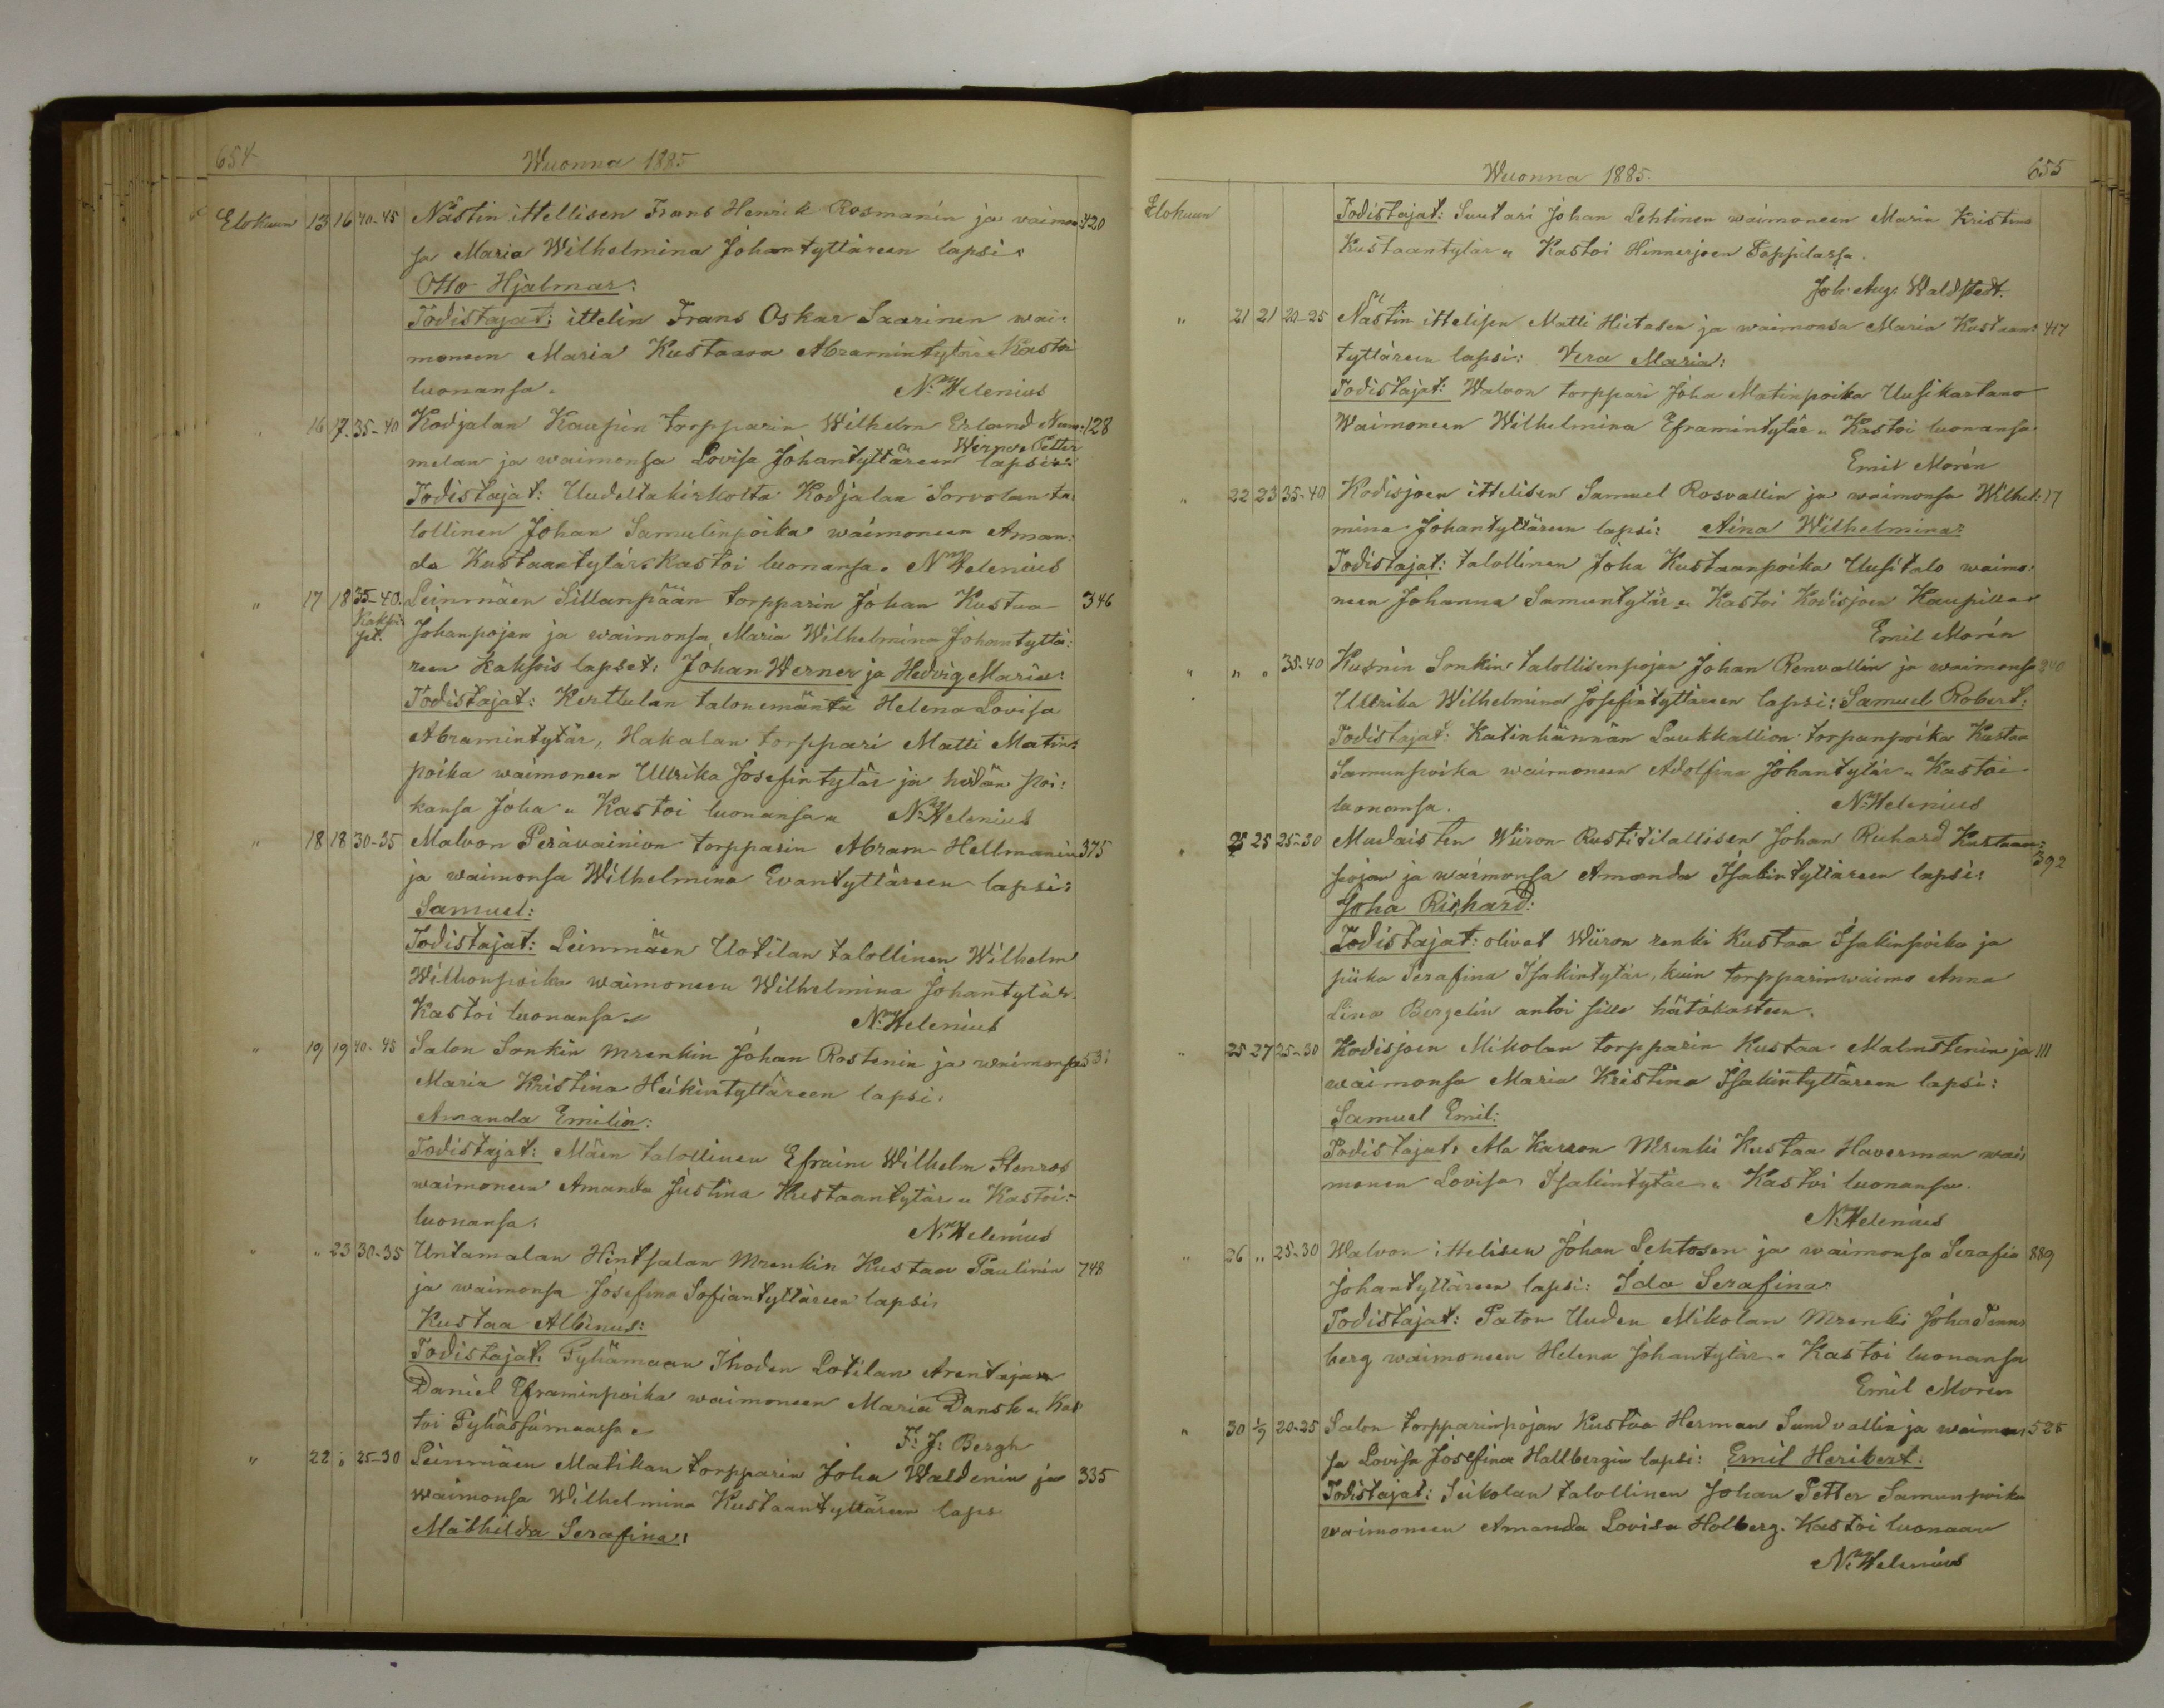 654
Wuonna 1885
Elokuun 13 16 40-45 Nästin ittellisen Frans Henrik Rosmanin ja vaimon: 420
sa Maria Wilhelmina Johantyttäreen lapsi:
Otto Hjalmar:
Todistajat: ittelin Frans Oskar Saarinen wai:
moneen Maria Kustaava Abramintytär. Kastoi
luonansa. N. Helenius
16 17 35-40 Kodjalan Kaupin torpparin Wilhelm Erland Num: 128
Werner Petter
melan ja waimonsa Lovisa Johantyttäreen lapsi:
Todistajat: Uudeltakirkolta Kodjalan Sorvolan ta:
lollinen Johan Samulinpoika waimoneen Aman:
da Kustaantytär. Kastoi luonansa. N Helenius
" 17 18 35-40. Leinmäen Sillanpään torpparin Johan Kustaa 346
Kaksi:
set. Johanpojan ja waimonsa Maria Wilhelmina Johantyttä:
reen Kaksois lapset: Johan Werner ja Hedvig Maria:
Todistajat: Kerttulan talonemäntä Helena Lovisa
Abramintytär, Hakalan torppari Matti Matin:
poika waimoneen Ullrika Josefintytär ja heidän poi:
kansa Joha " Kastoi luonansa " N. Helenius
" 18 18 30-35 Malvon Perävainion torpparin Abram Hellmanin 375
ja waimonsa Wilhelmina Evantyttäreen lapsi:
Samuel:
Todistajat: Leinmäen Uotilan talollinen Wilhelm
Wilhonpoika waimoneen Wilhelmina Johantytär.
Kastoi luonansa N. Helenius
" 19 19 40-45 Salon Sonkin Mrenkin Johan Rostenin ja waimonsa 531
Maria Kristina Heikintyttäreen lapsi:
Amanda Emilia:
Todistajat: Mäen talollinen Efraim Wilhelm Stenros
waimoneen Amanda Justina Kustaantytär " Kastoi
luonansa. N. Helenius
" " 23 30-35 Untamalan Hintsalan Mrenkin Kustaa Paulinin 748
ja waimonsa Josefina Sofiantyttäreen lapsi:
Kustaa Albinus:
Todistajat: Pyhämaan Ihoden Lotilan Arentajan
Daniel Eframinpoika waimoneen Maria Dansk " Kas
toi Pyhässämaassa F. J. Bergh
" 22 " 25-30 Leinmäen Matikan torpparin Joha Waldenin ja 335
waimonsa Wilhelmina Kustaantyttäreen laps
Mathilda Serafina:
Wuonna 1885.
655
Elokuun Todistajat: Suutari Johan Lehtinen waimoneen Maria Kristina
Kustaantytär " Kastoi Hinnerjoen Pappilassa.
Joh. Aug. Waldstedt.
" 21 21 20-25 Nästin ittelisen Matti Hietasen ja waimonsa Maria Kustaan: 417
tyttäreen lapsi: Vera Maria:
Todistajat: Walvon torppari Joha Matinpoika Uusikartano
Waimoneen Wilhelmina Eframintytär " Kastoi luonansa
Emil Morén
" 22 23 35-40 Kodisjoen ittelisen Samuel Rosvallin ja waimonsa Wilhel: 17
mina Johantyttäreen lapsi: Aina Wilhelmina:
Todistajat: talollinen Joha Kustaanpoika Uusitalo waimo:
neen Johanna Samuntytär " Kastoi Kodisjoen Kaupilla
Emil Morén
" " " 35-40 Kusnin Sonkin talollisenpojan Johan Renvallin ja waimonsa 240
Ullrika Wilhelmina Josefintyttäreen lapsi: Samuel Robert:
Todistajat: Katinhännän Laukkallion torpanpoika Kustaa
Samunpoika waimoneen Adolfina Johantytär " Kastoi
luonansa. N. Helenius
" 25 25 25-30 Mudaisten Wiiron Rustitilallisen Johan Richard Kustaan:
392
pojan ja waimonsa Amanda Isakintyttäreen lapsi:
Joha Richard:
Todistajat: olivat Wiiron renki Kustaa Isakinpoika ja
piika Serafina Isakintytär, kuin torpparinwaimo Anna
Lina Bergelin antoi sille hätäkasteen.
" 25 27 25-30 Kodisjoen Mikolan torpparin Kustaa Malmstenin ja 111
waimonsa Maria Kristina Isakintyttäreen lapsi:
Samuel Emil:
Todistajat: Ala Karson Mrenki Kustaa Haverman wai:
moneen Lovisa Isakintytär " Kastoi luonansa.
N. Helenius
" 26 " 25-30 Walvon ittelisen Johan Lehtosen ja waimonsa Serafia 889
Johantyttäreen lapsi: Ida Serafina:
Todistajat: Paton Uuden Mikolan Mrenki Joha Tenn
berg waimoneen Helena Johantytär " Kastoi luonansa
Emil Morén
" 30 1/9 20-25 Salon torpparinpojan Kustaa Herman Sundvallin ja waimon 525
sa Lovisa Josefina Hallbergin lapsi: Emil Heribert:
Todistajat: Seikolan talollinen Johan Petter Samunpoika
waimoneen Amanda Lovisa Holberg. Kastoi luonaan
N. Helenius